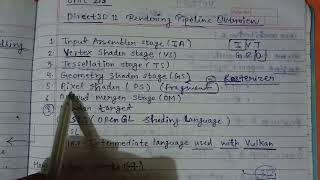 Direct3D 12 Rendering Pipeline Overview
1 Input Assembler stage (IA)
2 Vertex Shader stage (VS)
3 Tessellation stage (TS)
4 Geometry Shader stage (GS)
Rasterizer
5 Pixel Shader (PS) (Fragment)
6 merger stage (OM)
target
(Open GL Shading Language)
SL
Intermediate language used with Vulkan